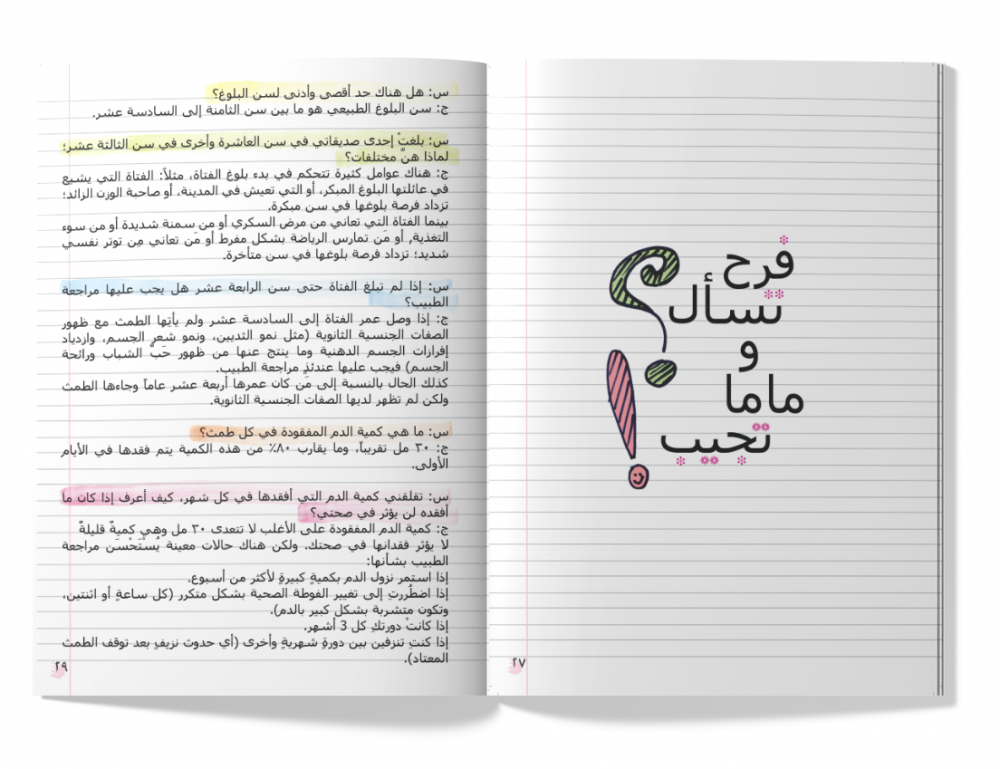 فرح
تسأل
و
ماما
تجيب
٢٧
س: هل هناك حد أقصى وأدنى لسن البلوغ؟
ج: سن البلوغ الطبيعي هو ما بين سن الثامنة إلى السادسة عشر.
س: بلغتْ إحدى صديقاتي في سن العاشرة وأخرى في سن الثالثة عشر؛
لماذا هنَّ مختلفات؟
ج: هناك عوامل كثيرة تتحكم في بدء بلوغ الفتاة، مثلاً: الفتاة التي يشيع
في عائلتها البلوغ المبكر، أو التي تعيش في المدينة، أو صاحبة الوزن الزائد؛
تزداد فرصة بلوغها في سن مبكرة.
بينما الفتاة التي تعاني من مرض السكري أو من سمنة شديدة أو من سوء
التغذية, أو مَن تمارس الرياضة بشكل مفرط أو مَن تعاني مِن توتر نفسي
شديد؛ تزداد فرصة بلوغها في سن متأخرة.
س: إذا لم تبلغ الفتاة حتى سن الرابعة عشر هل يجب عليها مراجعة
الطبيب؟
ج: إذا وصل عمر الفتاة إلى السادسة عشر ولم يأتِها الطمث مع ظهور
الصفات الجنسية الثانوية (مثل نمو الثديين، ونمو شعر الجسم، وازدياد
إفرازات الجسم الدهنية وما ينتج عنها من ظهور حَبّ الشباب ورائحة
الجسم) فيجب عليها عندئذٍ مراجعة الطبيب.
كذلك الحال بالنسبة إلى مَن كان عمرها أربعة عشر عاماً وجاءها الطمث
ولكن لم تظهر لديها الصفات الجنسية الثانوية.
س: ما هي كمية الدم المفقودة في كل طمث؟
ج: ٣٠ مل تقريباً، وما يقارب ٨٠٪ من هذه الكمية يتم فقدها في الأيام
الأولى.
س: تقلقني كمية الدم التي أفقدها في كل شهر، كيف أعرف إذا كان ما
أفقده لن يؤثر في صحتي؟
ج: كمية الدم المفقودة على الأغلب لا تتعدى ٣٠ مل وهي كميةٌ قليلةٌ
لا يؤثر فقدانها في صحتك. ولكن هناك حالات معينة يُسْتَحْسَن مراجعة
الطبيب بشأنها:
إذا استمر نزول الدم بكميةٍ كبيرةٍ لأكثر من أسبوع.
إذا اضطُررتِ إلى تغيير الفوطة الصحية بشكل متكرر (كل ساعةٍ أو اثنتين،
وتكون متشربة بشكل كبير بالدم).
إذا كانتْ دورتكِ كل 3 أشهر.
إذا كنتِ تنزفين بين دورةٍ شهريةٍ وأخرى (أي حدوث نزيفٍ بعد توقف الطمث
المعتاد).
٢٩